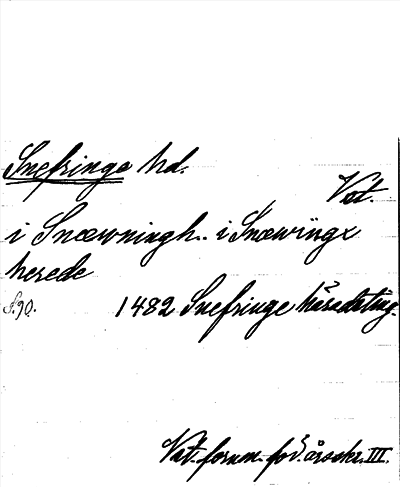 Snefringe hd.
Vst.
i Snæwningh.. i Snæwringx
herede
S. 90. 1482 Snefringe häradsting.
Vst. fornm-fös. årsskr. III.